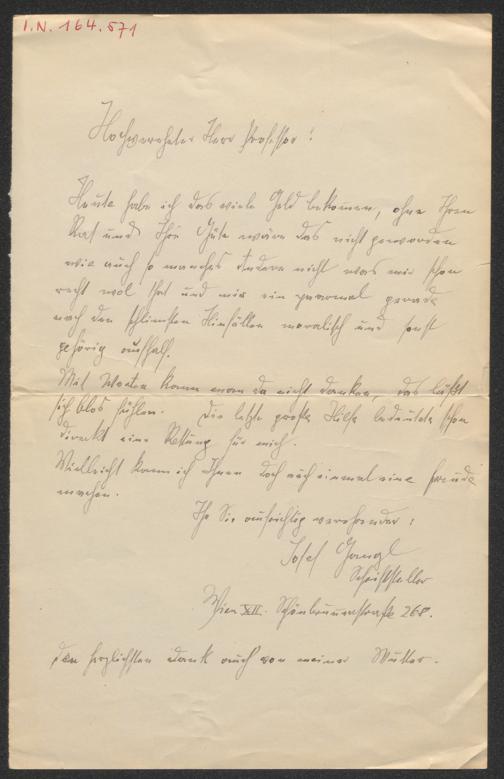 I.N. 164.571
Hochverehrter Herr Professor!
Heute habe ich das viele Geld bekommen, ohne Ihren
Rat und Ihre Güte wäre das nicht geworden
wie auch so manches Andere nicht was mir schon
recht wol that und mir ein paarmal gerade
nach den schlimsten Hinfällen moralisch und sonst
gehörig aufhalf.
Mit Worten kann man da nicht danken, das läßt
sich blos fühlen. Die letzte große Hilfe bedeutete schon
direkt eine Rettung für mich.
Vielleicht kann ich Ihnen doch auch einmal eine Freude
machen.
Ihr Sie aufrichtig verehrender:
Josef Gangl
Schriftsteller
Wien XII. Schönbrunnerstraße 268.
Den herzlichsten Dank auch von meiner Mutter.